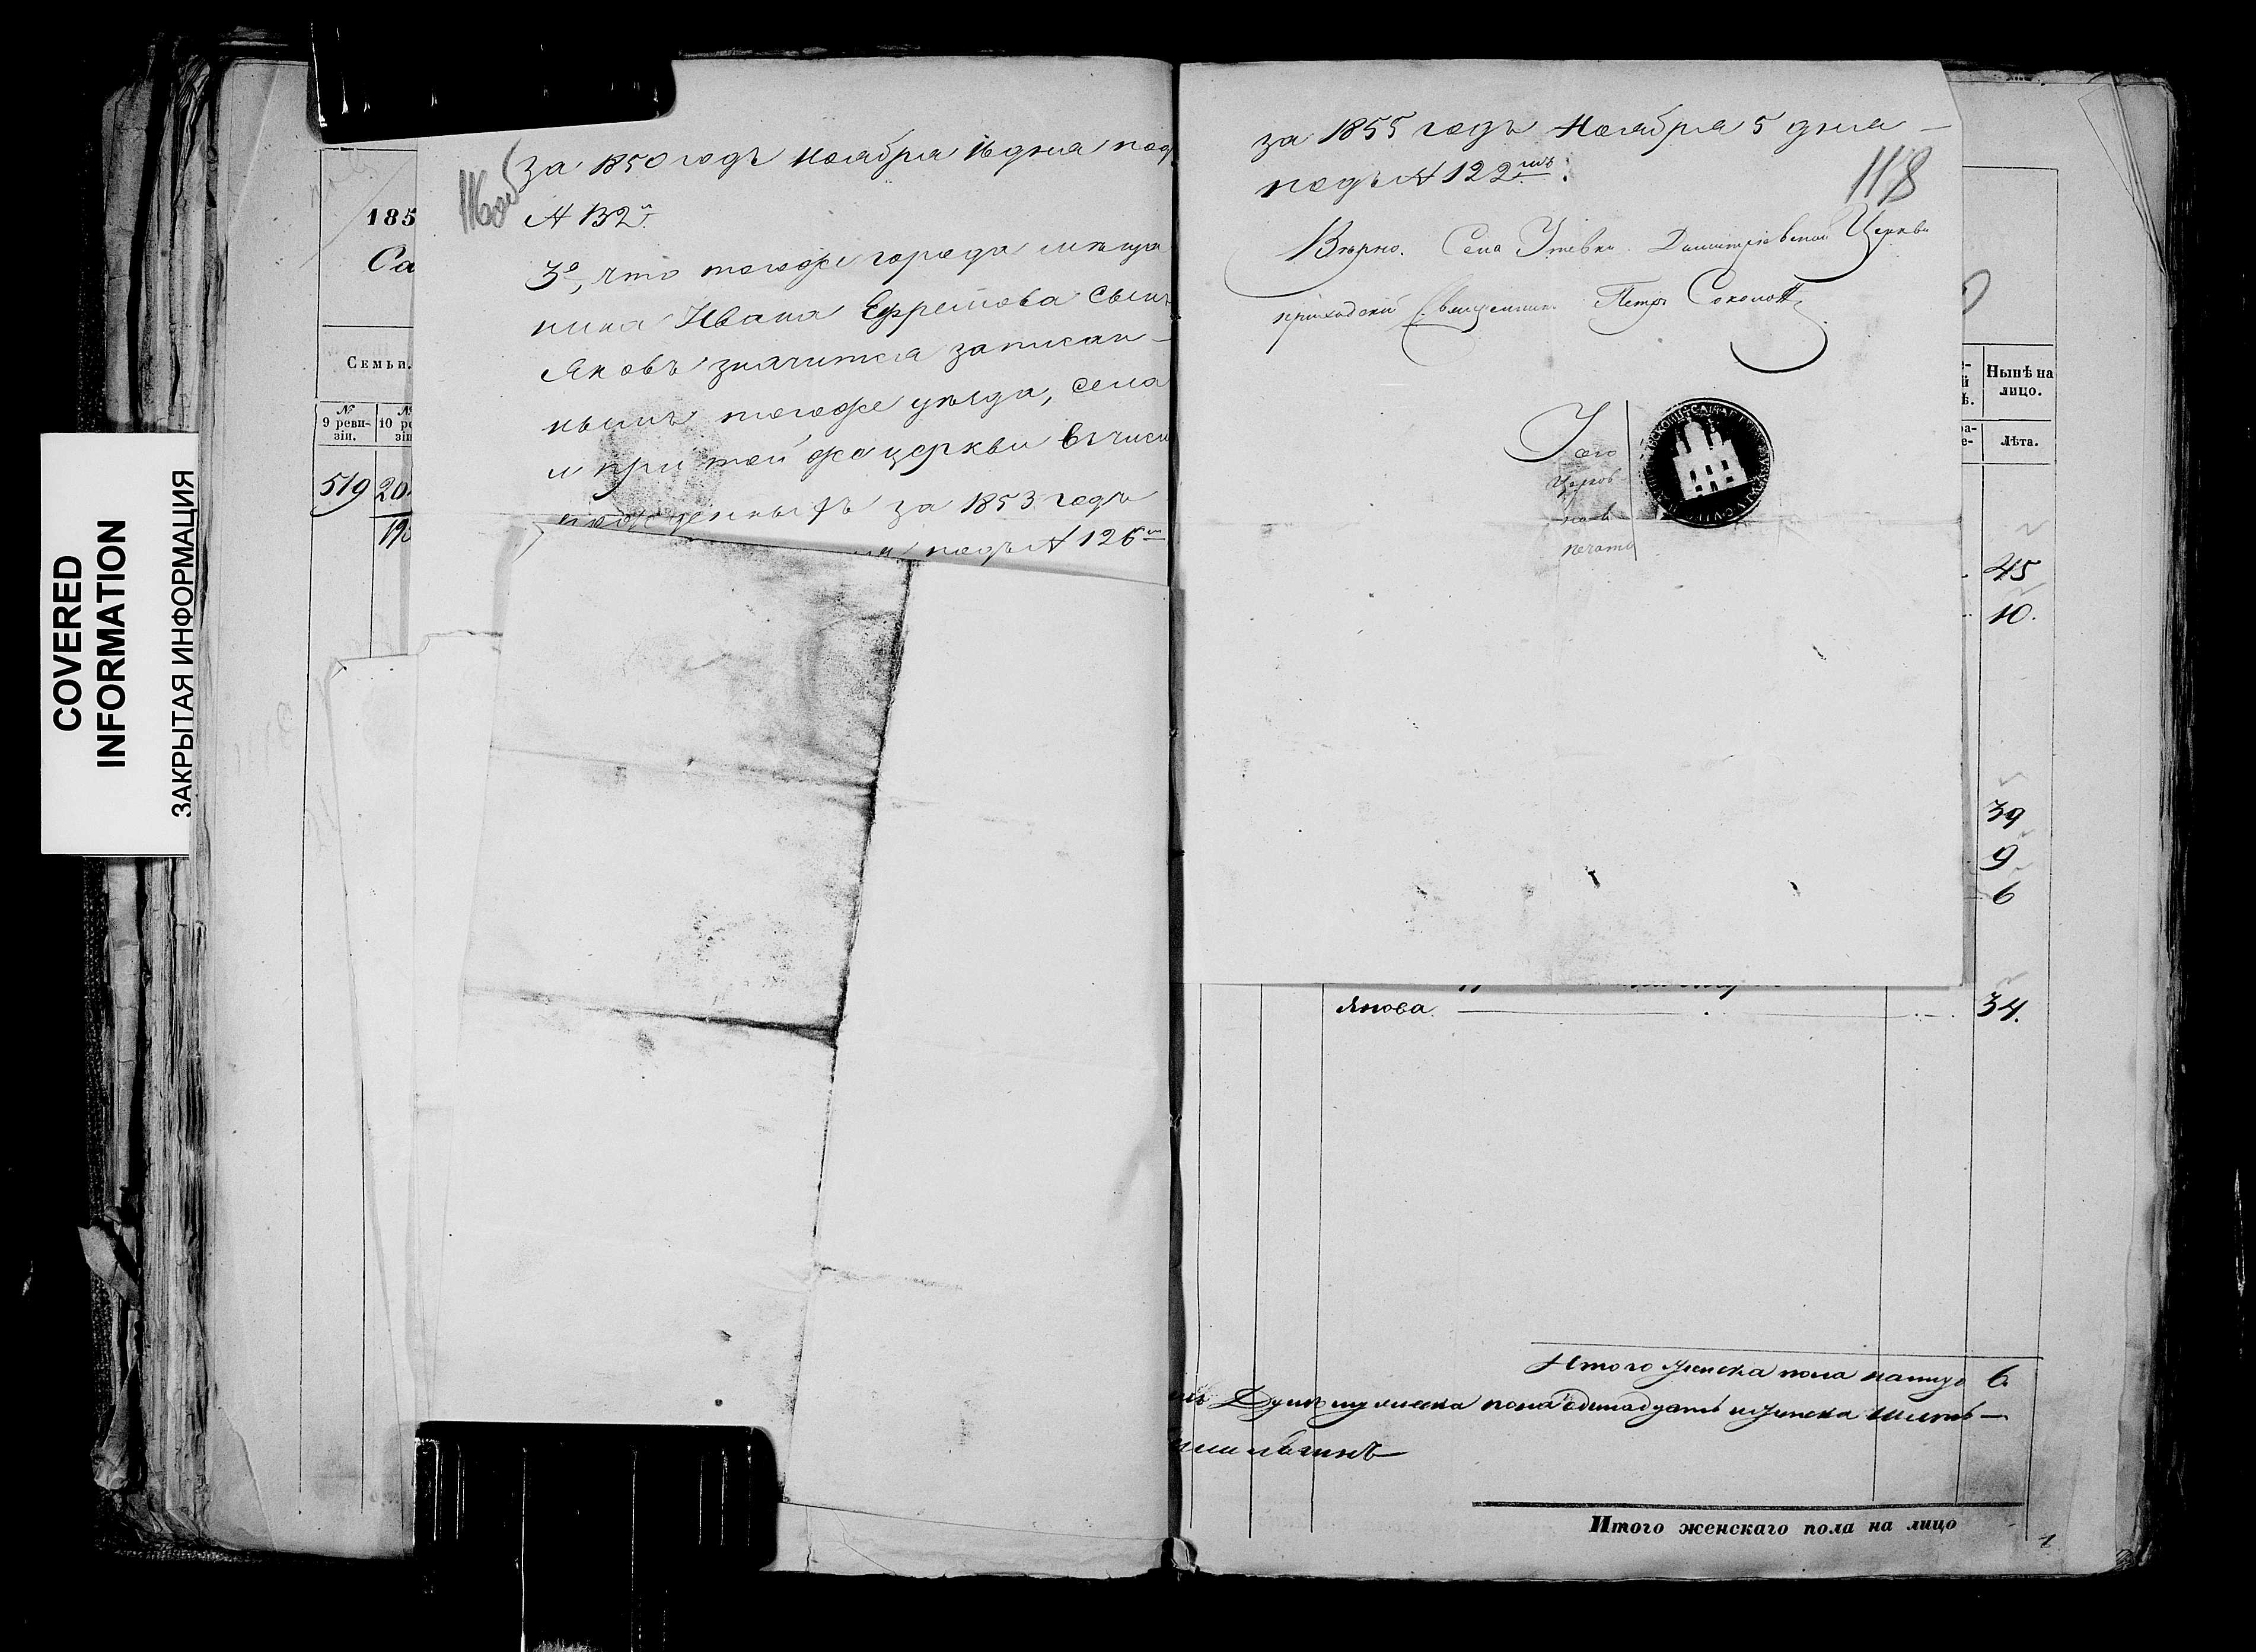 COVERED
INFORMATION
ЗАКРЫТАЯ ИНФОРМАЦИЯ
185
Са
Семьи.
№ 9 ревизіи.
10 ре
519
20
116 об
за 1850 годъ Ноября 16 дня под
№ 132й.
3е, что тогоже города мѣща
нина Ивана Ефремова сынъ
Яковъ значится записан-
нымъ тогоже уѣзда, села
и при той же церкви въ числѣ
рожденныхъ за 1853 годъ
подъ № 126м
за 1855 годъ Ноября 5 дня —
подъ № 122мъ:
118
Вѣрно. Села Утевки Димитріевской Церкви
приходскій Священникъ Петръ Соколовъ
Церков
печать
Нынѣ на лицо.
Лѣта.
45
10.
39
9
6
Якова
34.
Итого женска пола налицо 6.
Душъ мужеска пола одинадцать и женска шесть —
Итого женскаго пола на лицо